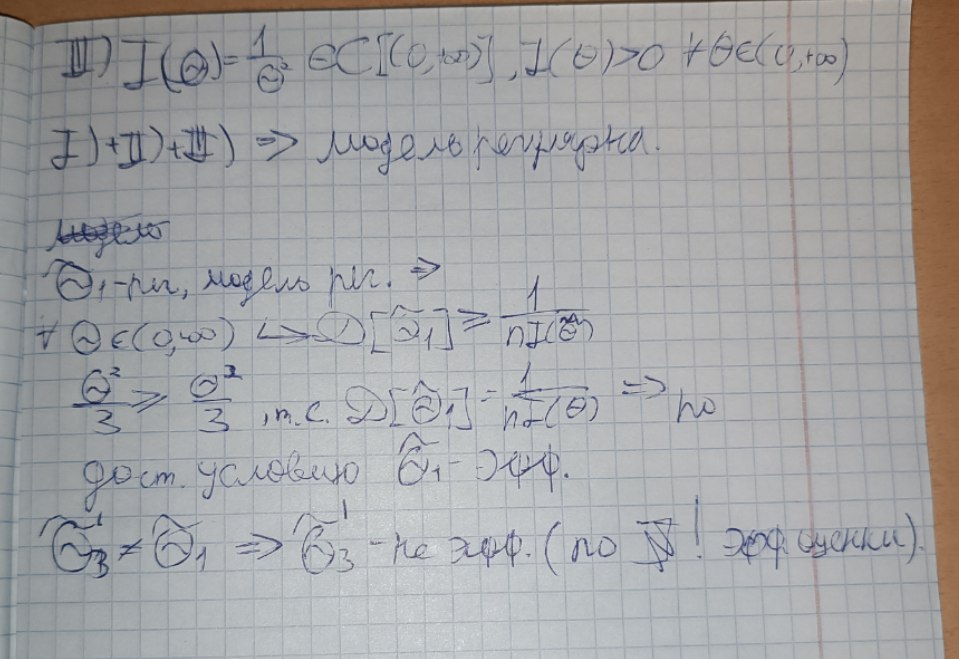 III) I(Θ) = 1/Θ² ∈ C[(0,+∞)], I(Θ)>0 ∀Θ∈(0,+∞)
I)+II)+III) => модель регулярна.
Θ̃₁-рег, модель рег. =>
∀ Θ∈(0,+∞) ↪ D[Θ̃₁] ⩾ 1/(nI(Θ))
Θ²/3 ⩾ Θ²/3, т.е. D[Θ̃₁] = 1/(nI(Θ)) => по
дост. условию Θ̃₁ - эфф.
Θ̃₃' ≠ Θ̃₁ => Θ̃₃' - не эфф. (по ! эфф. оценки).